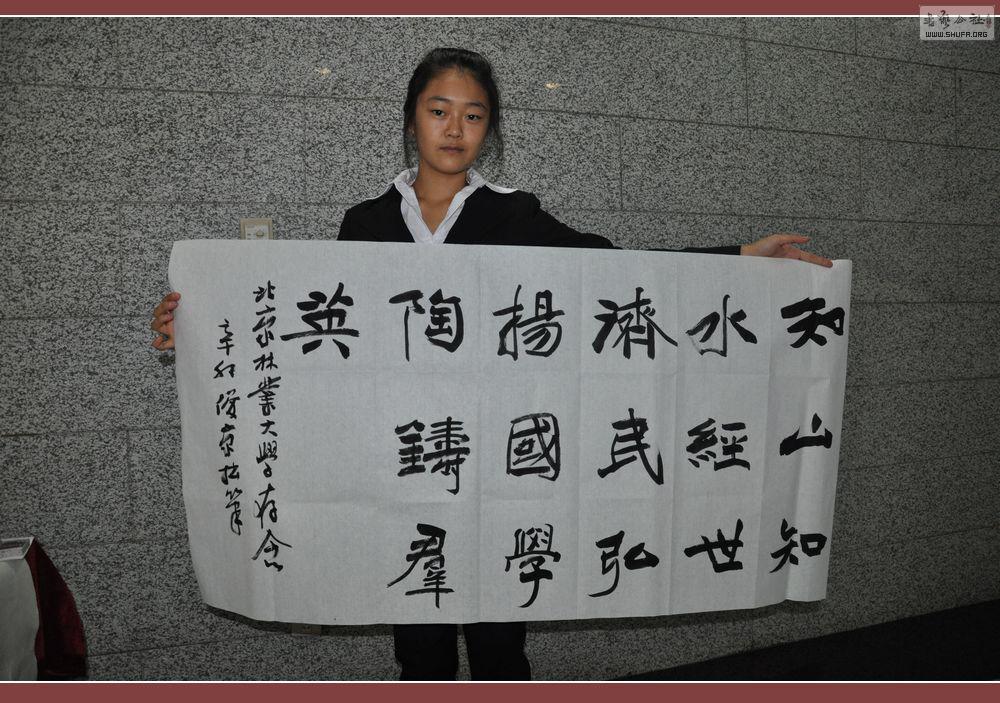 知山知
水經世
濟民弘
揚國學
陶鑄羣
英
北京林業大學存念
辛卯俊京拙筆
WWW.SHUFA.ORG